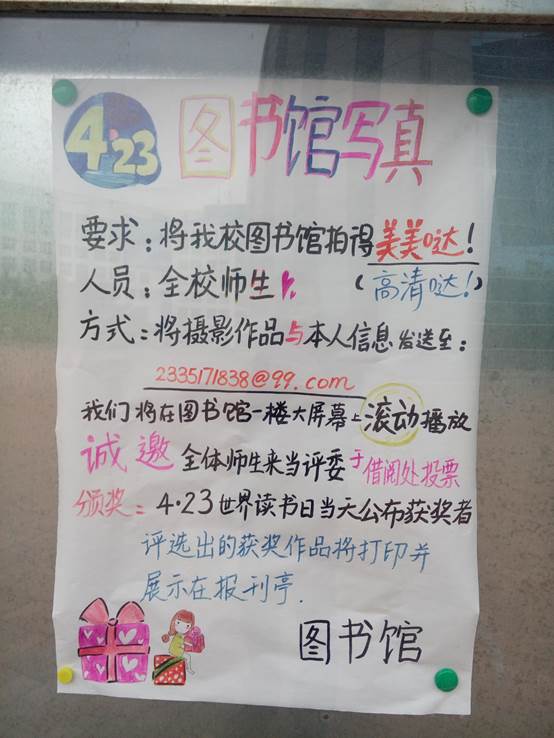 4·23 图书馆写真
要求：将我校图书馆拍得美美哒！
人员：全校师生 （高清哒！）
方式：将摄影作品与本人信息发送至：
2335171838@qq.com
我们将在图书馆一楼大屏幕上滚动播放
诚邀 全体师生来当评委于借阅处投票
颁奖：4·23世界读书日当天公布获奖者
评选出的获奖作品将打印并
展示在报刊亭.
图书馆